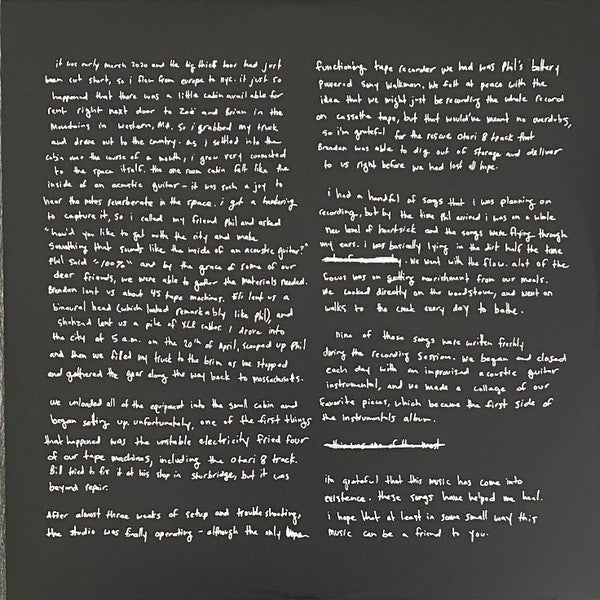 it was early march 2020 and the big thief tour had just
been cut short, so i flew from europe to nyc. it just so
happened that there was a little cabin available for
rent right next door to Zoë and Brian in the
mountains in western, Ma. so i grabbed my truck
and drove out to the country. as i settled into the
cabin over the course of a month, i grew very connected
to the space itself. the one room cabin felt like the
inside of an acoustic guitar - it was such a joy to
hear the notes reverberate in the space. i got a hankering
to capture it, so i called my friend Phil and asked
"how'd you like to get outta the city and make
something that sounds like the inside of an acoustic guitar?"
Phil said "100%" and by the grace of some of our
dear friends, we were able to gather the materials needed.
Brandon lent us about 45 tape machines. Eli lent us a
binaural head (which looked remarkably like phil), and
shahzad lent us a pile of XLR cables. I drove into
the city at 5 a.m. on the 20th of April, scooped up Phil
and then we filled my truck to the brim as we stopped
and gathered the gear along the way back to massachusetts.
we unloaded all of the equipment into the small cabin and
began setting up. unfortunately, one of the first things
that happened was the unstable electricity fried four
of our tape machines, including the otari 8 track.
Bill tried to fix it at his shop in sturbridge, but it was
beyond repair.
After almost three weeks of setup and trouble shooting,
the studio was finally operating - although the only
functioning tape recorder we had was Phil's battery
powered sony walkman. We felt at peace with the
idea that we might just be recording the whole record
on cassette tape, but that would've meant no overdubs,
so i'm grateful for the rescue otari 8 track that
Brandon was able to dig out of storage and deliver
to us right before we had lost all hope.
i had a handful of songs that i was planning on
recording, but by the time Phil arrived i was on a whole
new level of heartsick and the songs were flying through
my ears. i was basically lying in the dirt half the time
. we went with the flow. alot of the
focus was on getting nourishment from our meals.
we cooked directly on the woodstove, and went on
walks to the creek every day to bathe.
Nine of these songs were written freshly
during the recording session. We began and closed
each day with an improvised acoustic guitar
instrumental, and we made a collage of our
favorite pieces, which became the first side of
the instrumentals album.
this was one of the most
im grateful that this music has come into
existence. these songs have helped me heal.
i hope that at least in some small way this
music can be a friend to you.